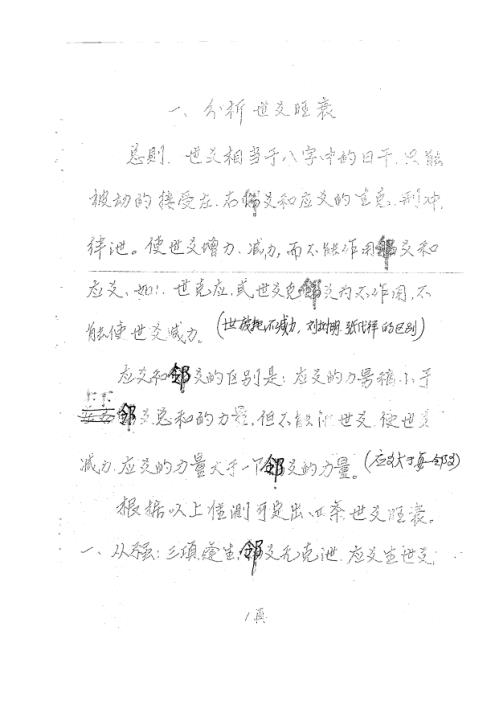 一、分析世爻旺衰
总则、世爻相当于八字中的日干、只能
被动的接受左、右邻爻和应爻的生克、刑冲、
绊泄。使世爻增力、减力,而不能作用邻爻和
应爻、如:世克应,或世爻克邻爻为不作用,不
能使世爻减力。(世被耗不减力,
应爻和邻爻的区别是:应爻的力量稍小于
邻爻总和的力量,但不能泄世爻、使世爻
减力、应爻的力量大于一个邻爻的力量。(应爻大于单邻爻)
根据以上准则可定出 条世爻旺衰。
一、从强:三项逢生,邻爻无克泄、应爻生世爻,
1页